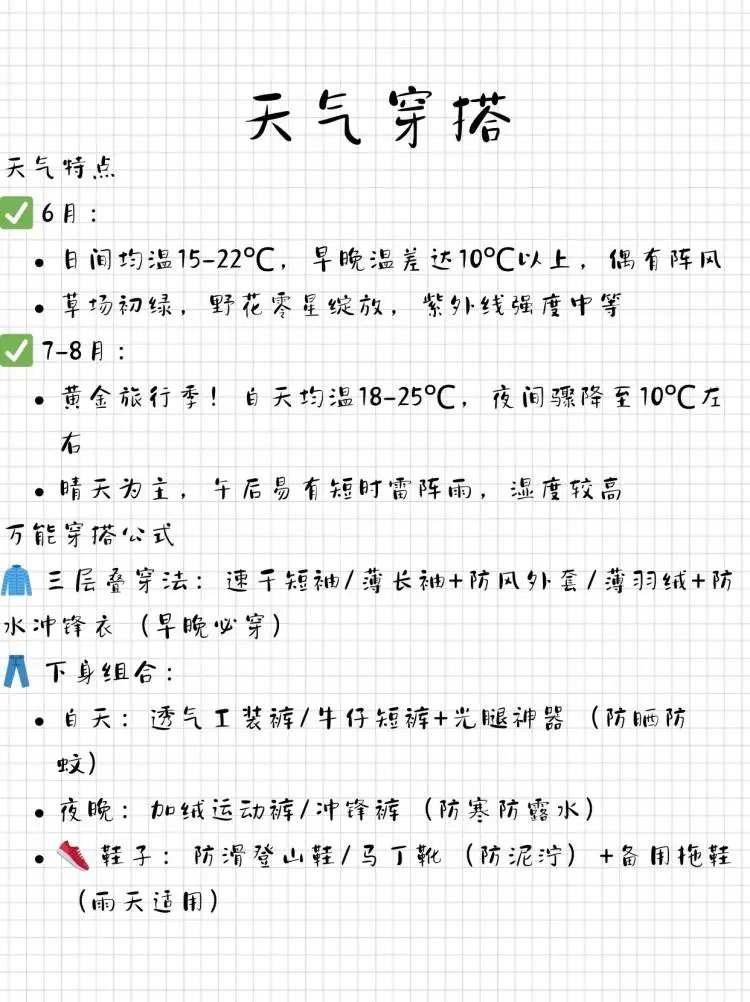 天气穿搭
天气特点
✅ 6月：
• 日间均温15-22℃，早晚温差达10℃以上，偶有阵风
• 草场初绿，野花零星绽放，紫外线强度中等
✅ 7-8月：
• 黄金旅行季！白天均温18-25℃，夜间骤降至10℃左
右
• 晴天为主，午后易有短时雷阵雨，湿度较高
万能穿搭公式
三层叠穿法：速干短袖/薄长袖+防风外套/薄羽绒+防
水冲锋衣（早晚必穿）
👖 下身组合：
• 白天：透气工装裤/牛仔短裤+光腿神器（防晒防
蚊）
• 夜晚：加绒运动裤/冲锋裤（防寒防露水）
• 👟 鞋子：防滑登山鞋/马丁靴（防泥泞）+备用拖鞋
（雨天适用）